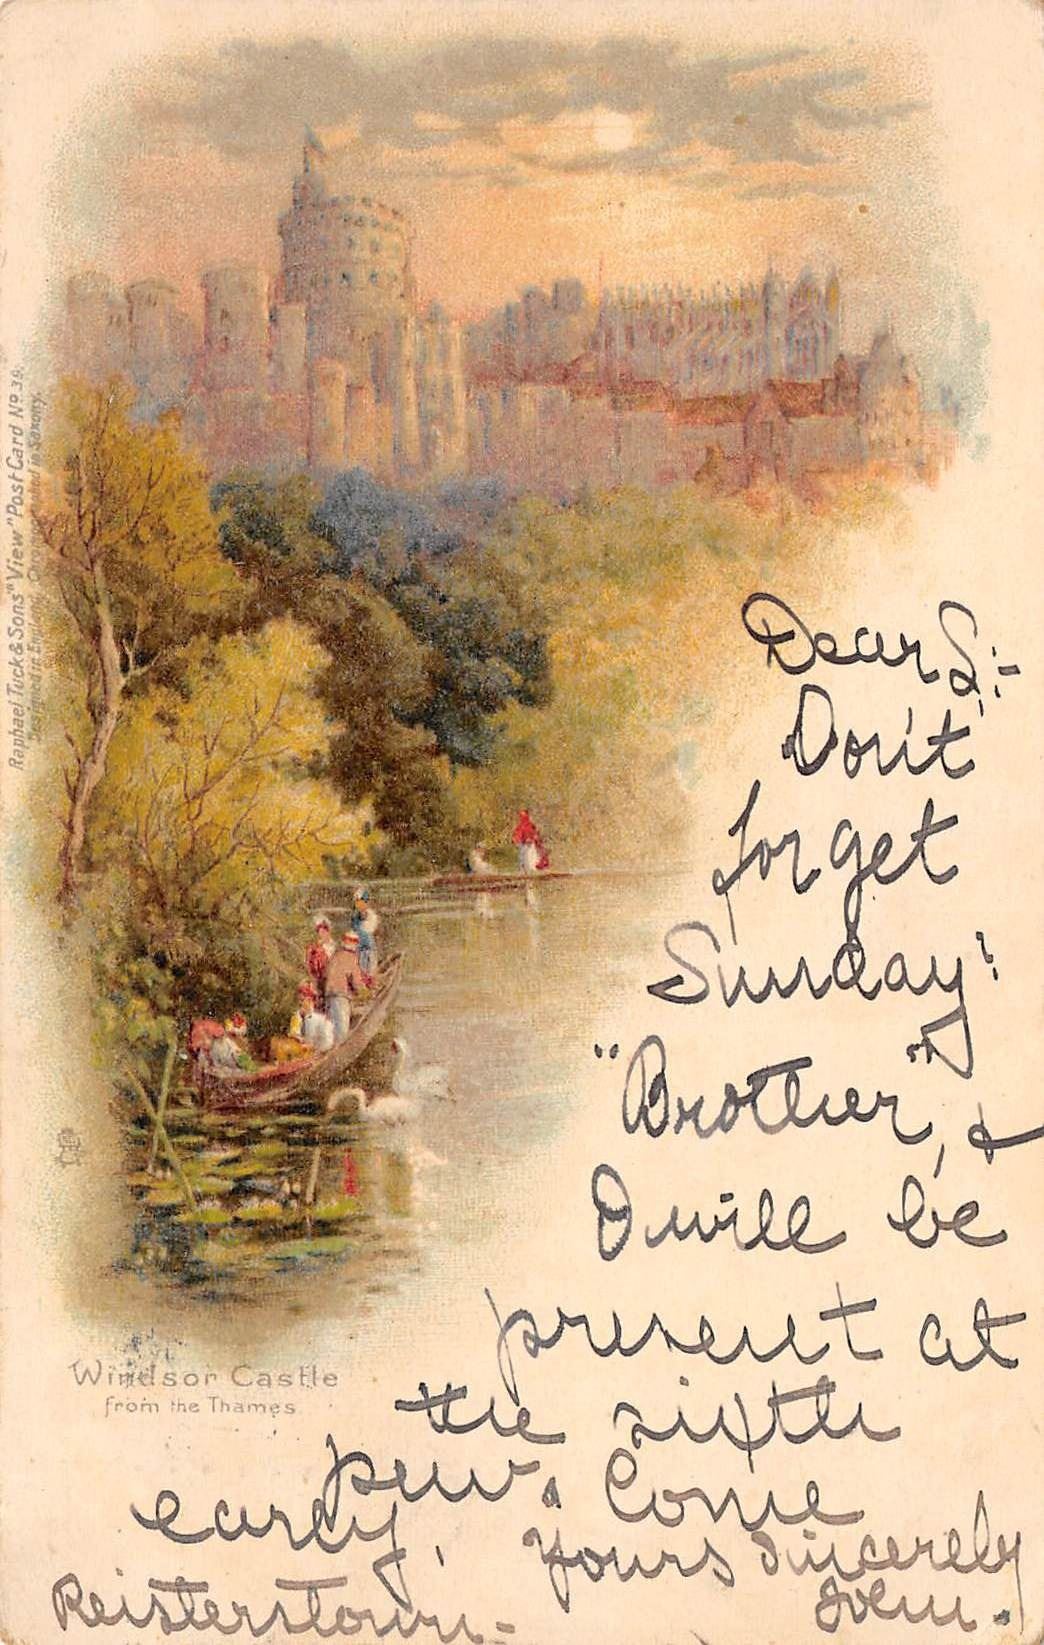 Raphael Tuck & Sons' "View" Post Card No 39.
Designed in England, Chromographed in Saxony.
Windsor Castle
from the Thames
Dear S:-
Don't
forget
Sunday!
"Brother", &
I will be
present at
the sixth
pew. Come
early,
Yours Sincerely
John.
Reisterstown-